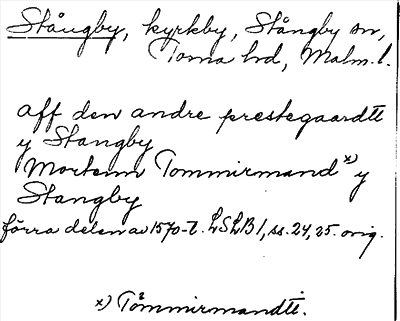 Stångby, kyrkby, Stångby sn,
Torna hrd, Malm. l.
aff den andre prestegaardtt
y Stangby
Mortenn Tommirmand x) y
Stangby
förra delen av 1570-t. LSLB 1, ss. 24, 25. orig.
x) Tömmirmandtt.